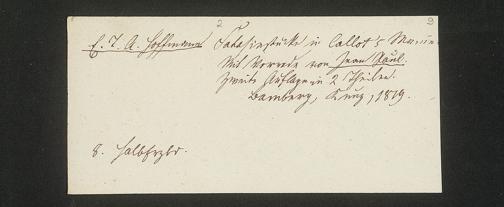 2
E. T. A. Hoffmann Fantasiestücke in Callot's Manier.
Mit Vorrede von Jean Paul.
Zweite Auflage in 2 Theilen.
Bamberg, Kunz, 1819.
8. Halbfrzbd.